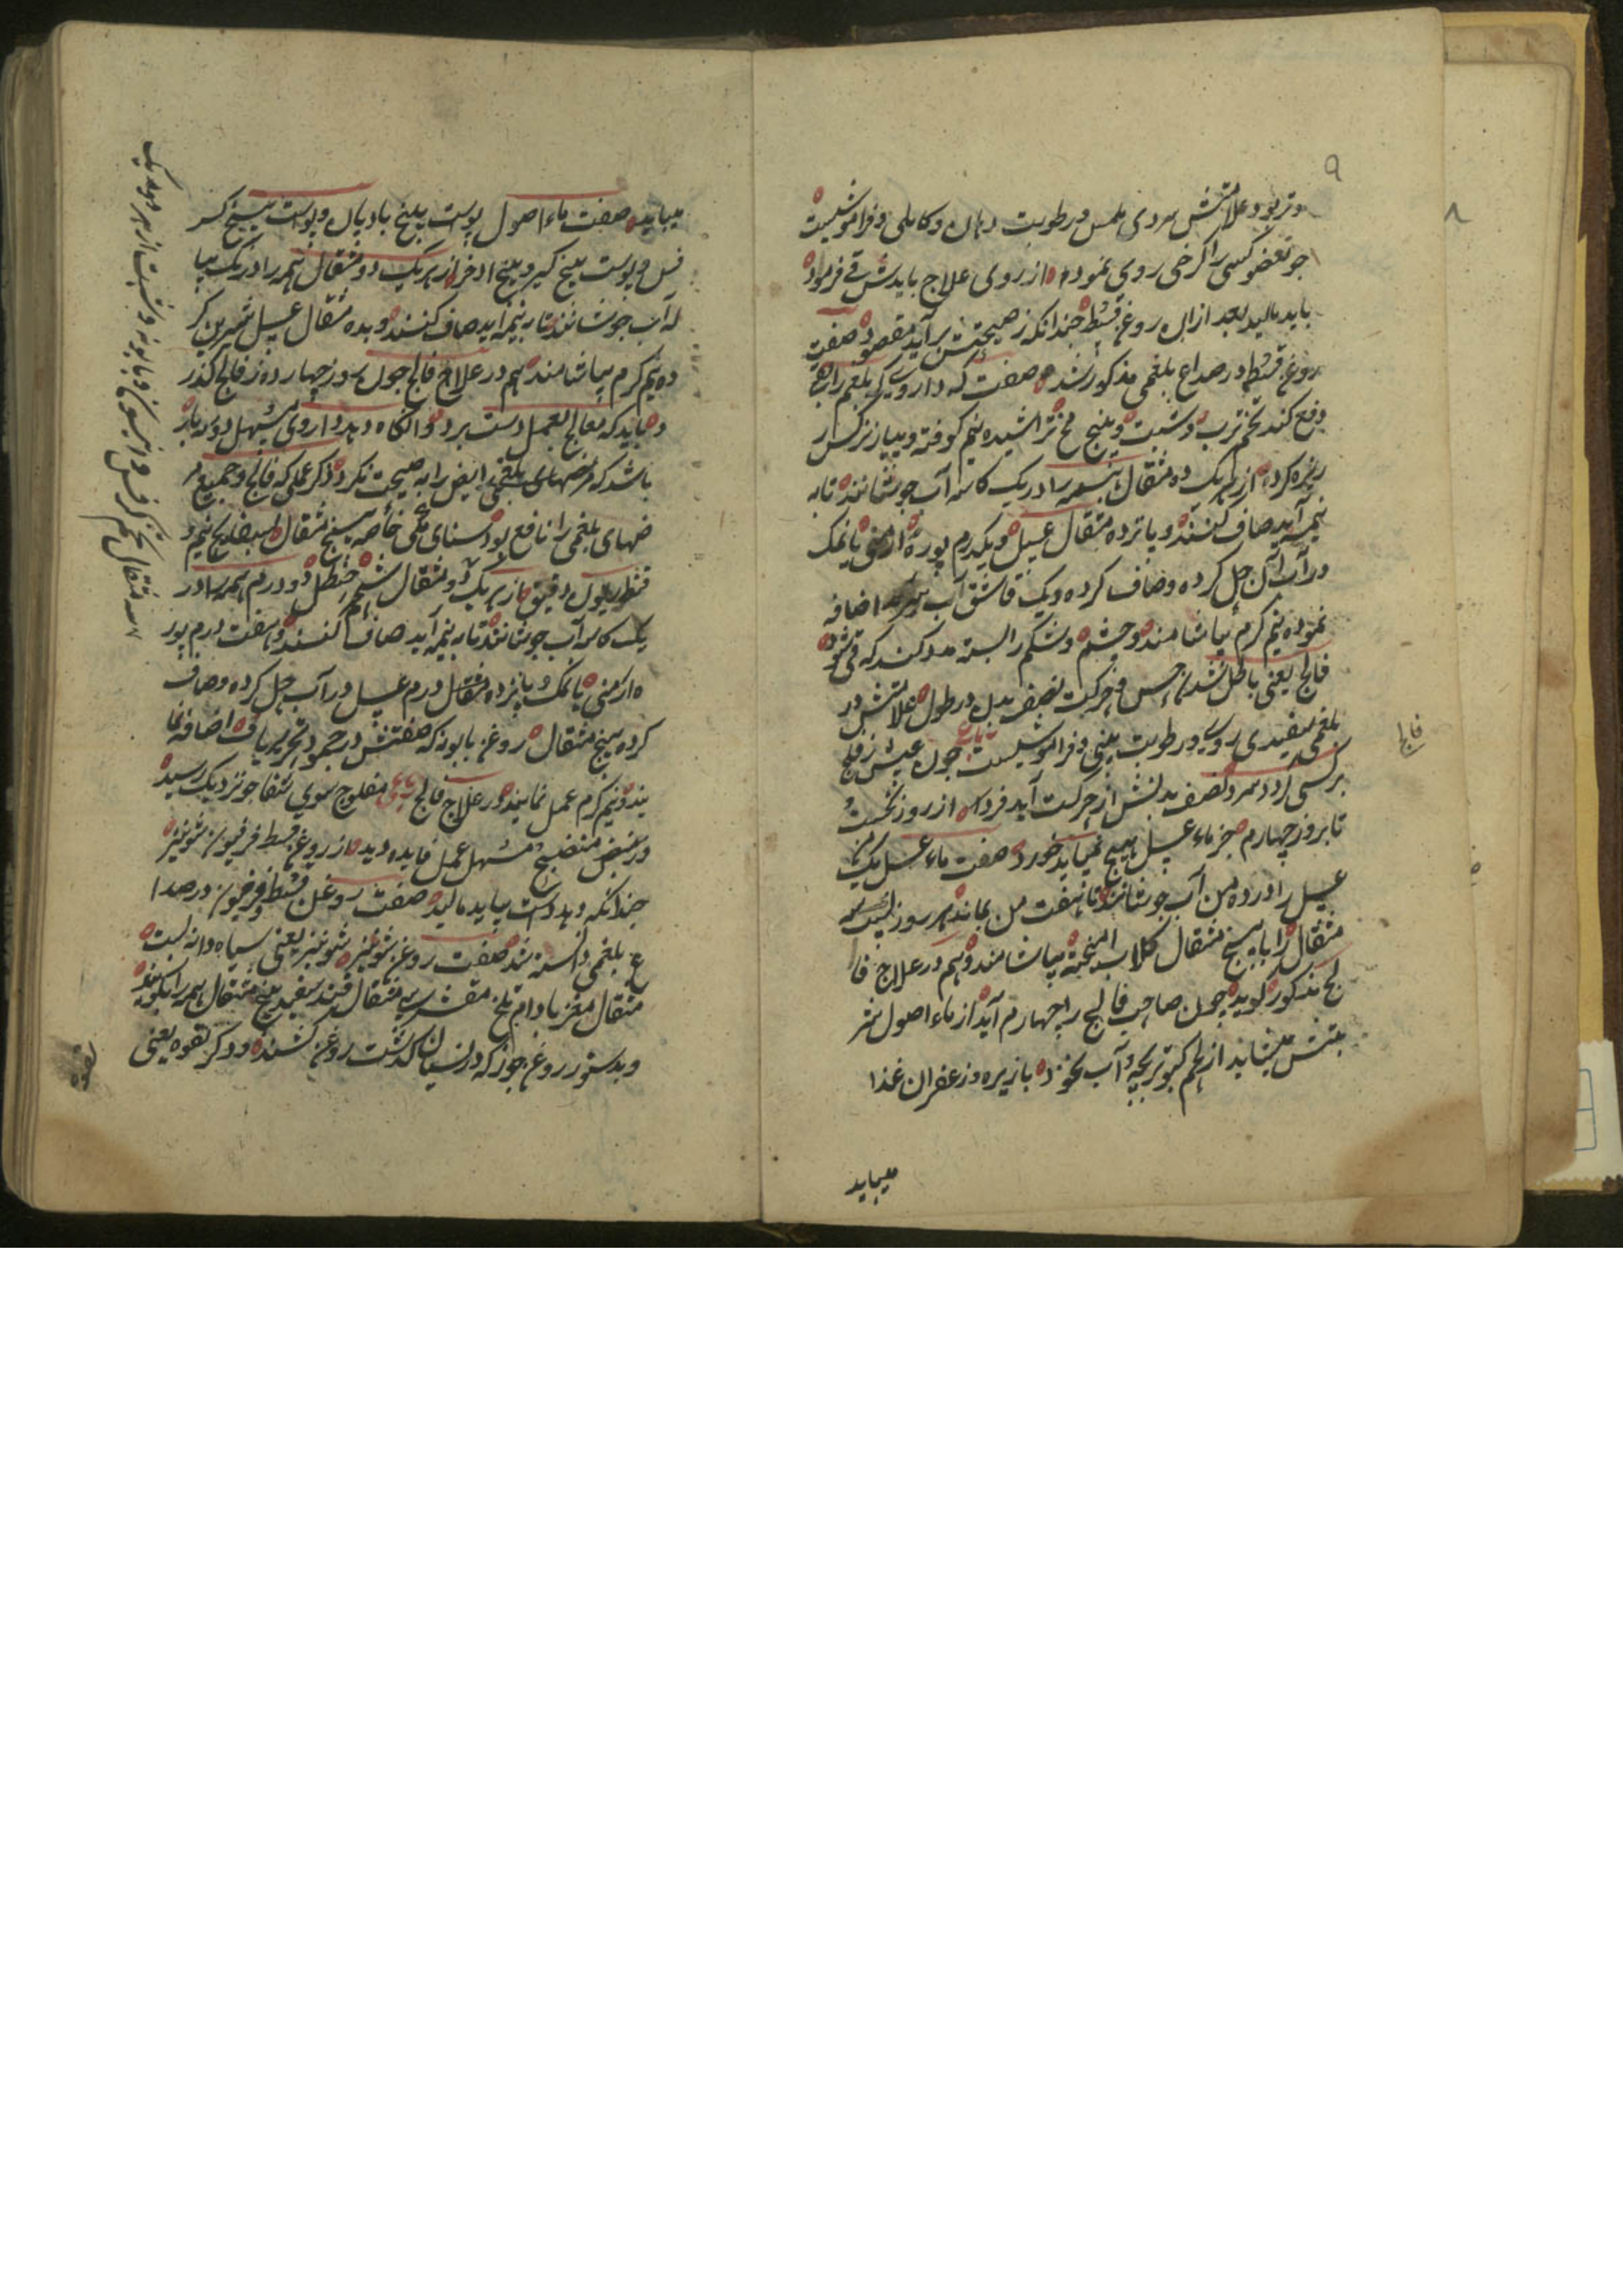 ۹
وتر بود و علامتش سردی ملمس و رطوبت دهان و کاهلی و فراموشیست
چو بعضو کسی را کرخی روی نموده از روی علاج بایدش قی فرمود
باید مالید بعد ازان روغن قسط چندانکه ز صحیحتش برآید مقصود صفت
روغن قسط در صداع بلغمی مذکور شد صفت که دارویی که بلغم را بقی
دفع کند تخم ترب و شبت و بیخ تراشیده نیم کوفته و پیاز نرکس
ریزه کرده از هر یک ده مثقال همه را در یک کاسه آب جوشانند تا به
نیمه آید صاف کنند و پانزده مثقال عسل و یکدرم بوره ارمنی یا نمک
در آب آن حل کرده و صاف کرده و یک قاشق آب اضافه
نموده نیم کرم بیاشامند و چشم و شکم را بسته مدد کنند که قی شود
فالج یعنی باطل شدن حس و حرکت نصف بدن در طول علامتش در
بلغمی سفیدی روی و رطوبت بینی و فراموشیست چون عیش ز فلج
بر کسی کردد سرد نصف بدنش از حرکت آید فرد از روز نخست
تا بروز چهارم جز ماء عسل هیچ نمیباید خورد صفت ماء عسل یک من
عسل را در ده من آب جوشانند تا هفت من بماند هر روز بیست
مثقال را با پنج مثقال کلاب آمیخته بیاشامند و هم در علاج فا
لج مذکور کوید چون صاحب فالج را چهارم آید از ماء اصول شر
بتش میباید از لحم کبوتر بچه و آب نخود با زیره و زعفران غذا
میباید
فالج
۸
میباید صفت ماء اصول پوست بیخ بادیان و پوست بیخ کر
فس و پوست بیخ کبر و بیخ اذخر از هر یک دو مثقال همه را در یک پیا
له آب جوشانند تا به نیمه آید صاف کنند و بده مثقال عسل شیرین کر
ده نیم کرم بیاشامند هم در علاج فالج چون روز چهارده ز فالج کذر
د باید که معالج بعمل دست برد وانکاه دهد داروی مسهل دو سه بار
باشد که مرضهای بلغمی را به صحت نکرد ذکر عملی که فالج و جمیع مر
ضهای بلغمی را نافع بود سنای مکی خاصه پنج مثقال بسفایج نیم
قنطوریون دقیق از هر یک دو مثقال شحم حنظل دو درم همه را در
یک کاسه آب جوشانند تا به نیمه آید صاف کنند و هفت درم بور
ه ارمنی یا نمک و پانزده مثقال درم عسل در آب حل کرده و صاف
کرده پنج مثقال روغن بابونه که صفتش در جمود تحریر یافت اضافه نما
یند و نیم کرم عمل نمایند در علاج فالج مفلوج سوی شفا چو نزدیک رسید
در نبض منضج مسهل عمل فایده دید از روغن قسط فرفیون شونیز
چندانکه دهد دست بباید مالید صفت روغن قسط و فرفیون در صدا
ع بلغمی دانسته شد صفت روغن شونیز شونیز یعنی سیاه دانه بیست
مثقال مغز بادام تلخ مقشر سی مثقال قند سفید پنج مثقال همه را بکوبند
و بدستور روغن جوز که در نسیان کذشت روغن کشند ذکر لقوه یعنی
لقوه
سه مثقال تخم کرفس و انیسون و بابونه و شبت از هر دو یک